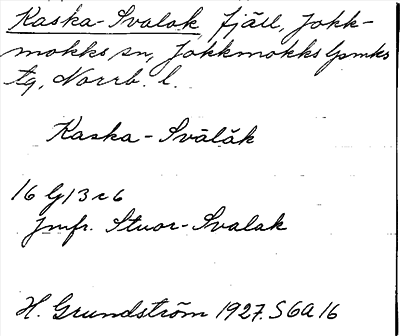 Kaska-Svalak fjäll, Jokk-
mokks sn, Jokkmokks lpmks
tg, Norrb. l.
Kaska-Svālăk
16 G/3 c 6
Jmfr. Stuor-Svalak
H. Grundström 1927. S6A16